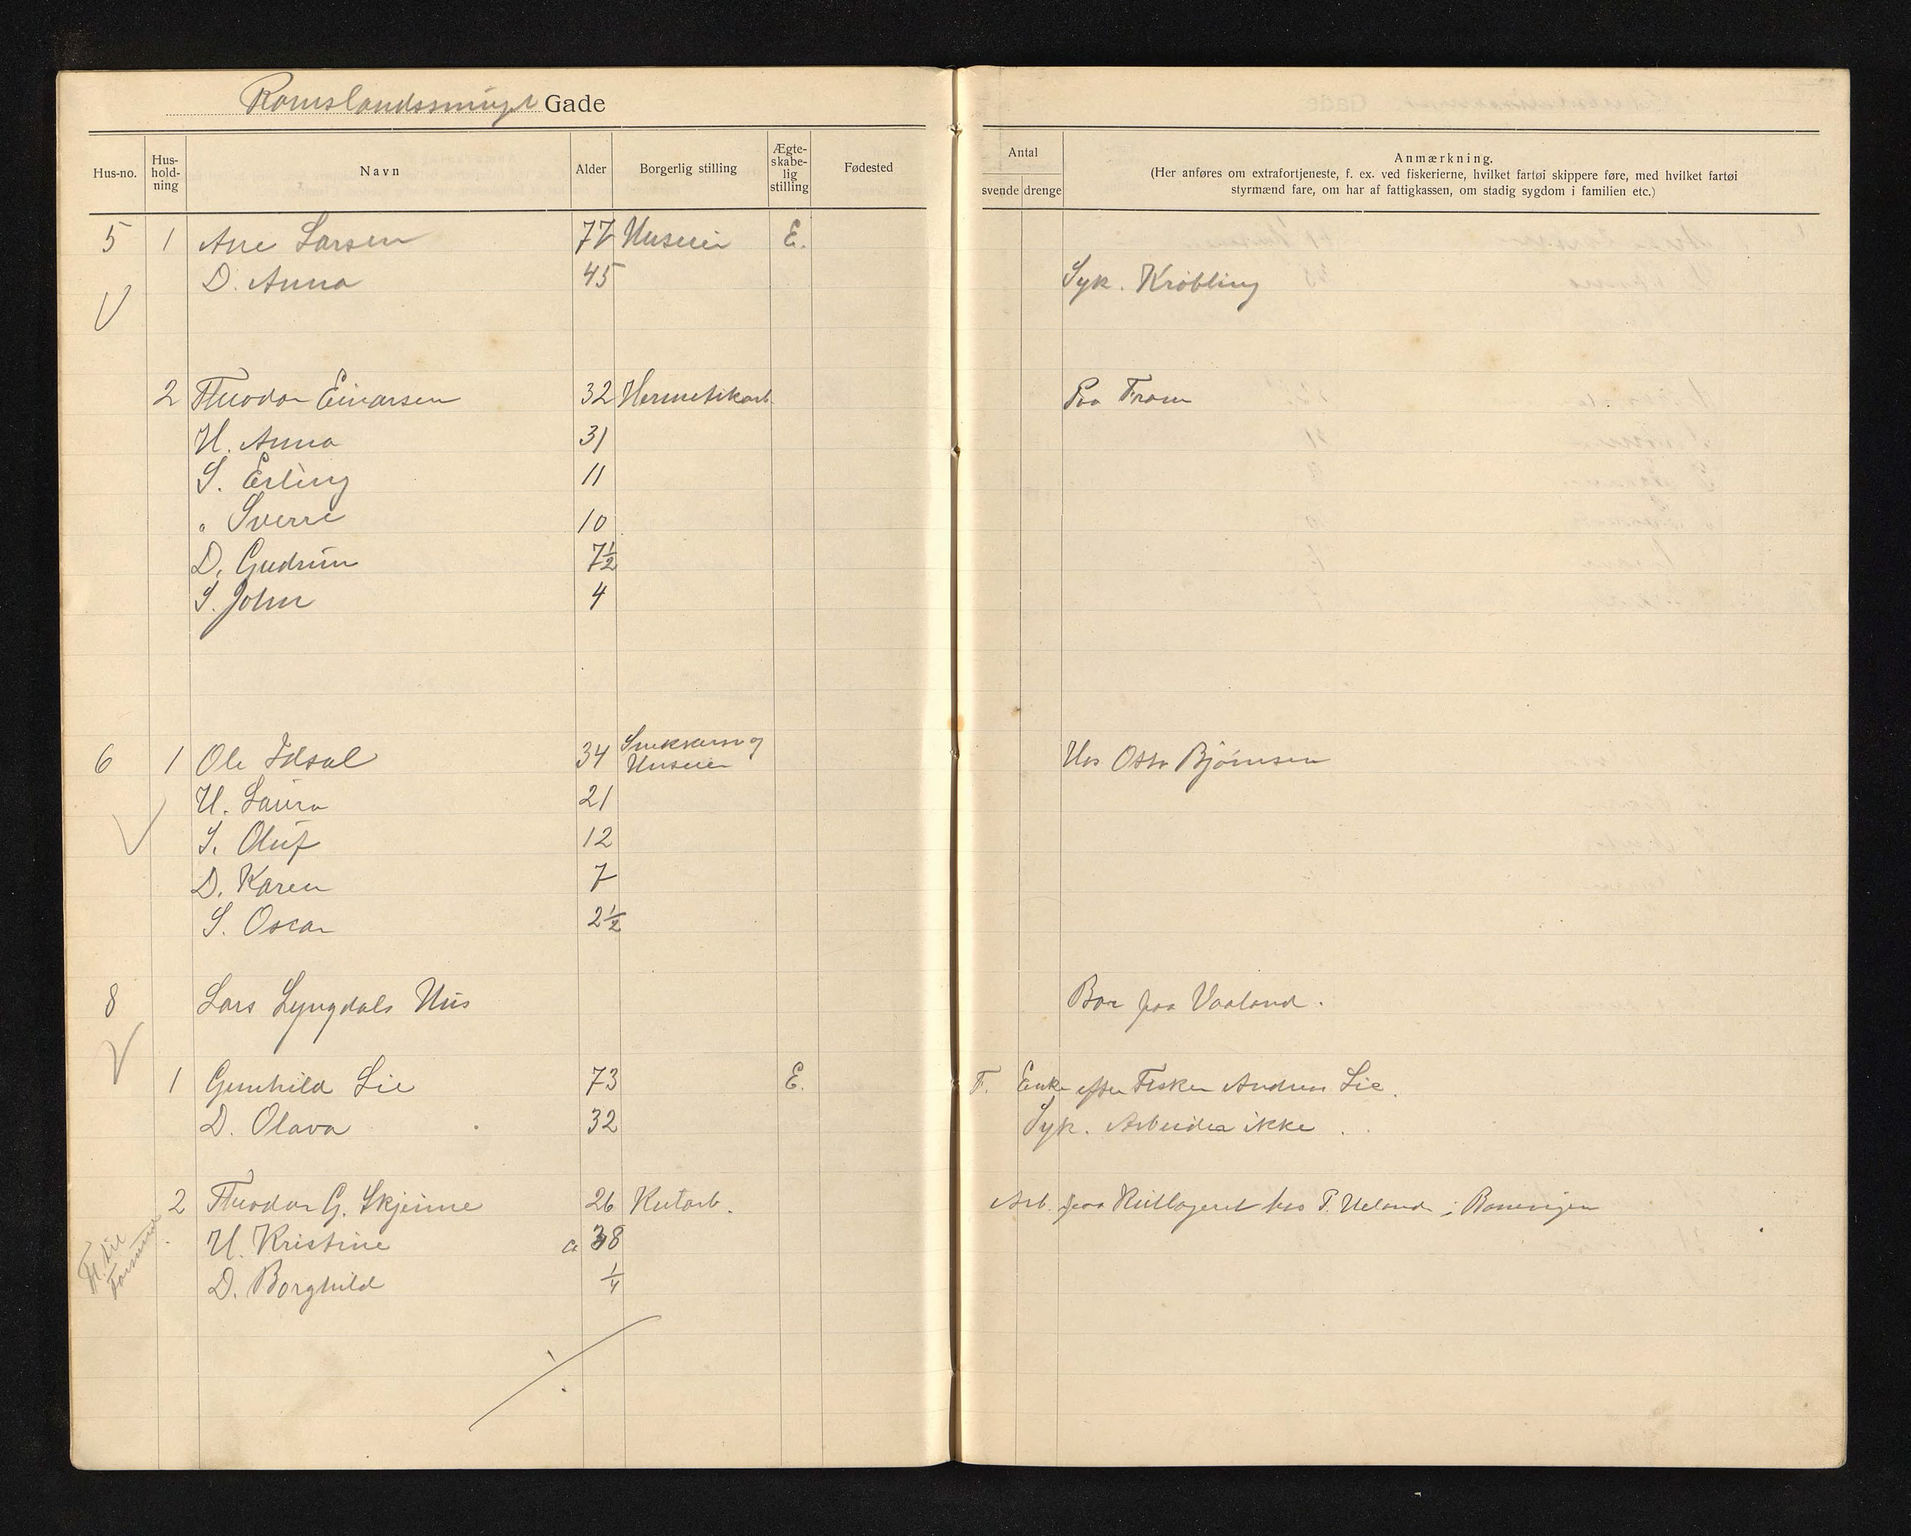 Romslandssmuget Gade
Hus-no. Hus-hold-ning Navn Alder Borgerlig stilling Ægte-skabe-lig stilling Fødested Antal svende drenge Anmærkning.
(Her anføres om extrafortjeneste, f. ex. ved fiskerierne, hvilket fartøi skippere føre, med hvilket fartøi
styrmænd fare, om har af fattigkassen, om stadig sygdom i familien etc.)
5 1 Ane Larsen 77 Huseier E.
D. Anna 45 Syk. Krøbling
2 Theodor Einarsen 32 Hermetikarb. Paa Fram
H. Anna 31
S. Erling 11
" Sverre 10
D. Gudrun 7½
S. John 4
6 1 Ole Idsal 34 Snekker og Huseier Hos Otto Bjørnsen
H. Laura 21
S. Oluf 12
D. Karen 7
S. Oscar 2½
8 Lars Lyngdals Hus Bor paa Vaaland.
1 Gunhild Lie 73 E. F. Enke efter Fisker Andreas Lie.
D. Olava 32 Syk. Arbeider ikke.
2 Theodor G. Skjeime 26 Kularb. Arb. paa Kullageret hos P. Ueland i Banevigen
H. Kristine a 38
D. Borghild ¼
Fl. til